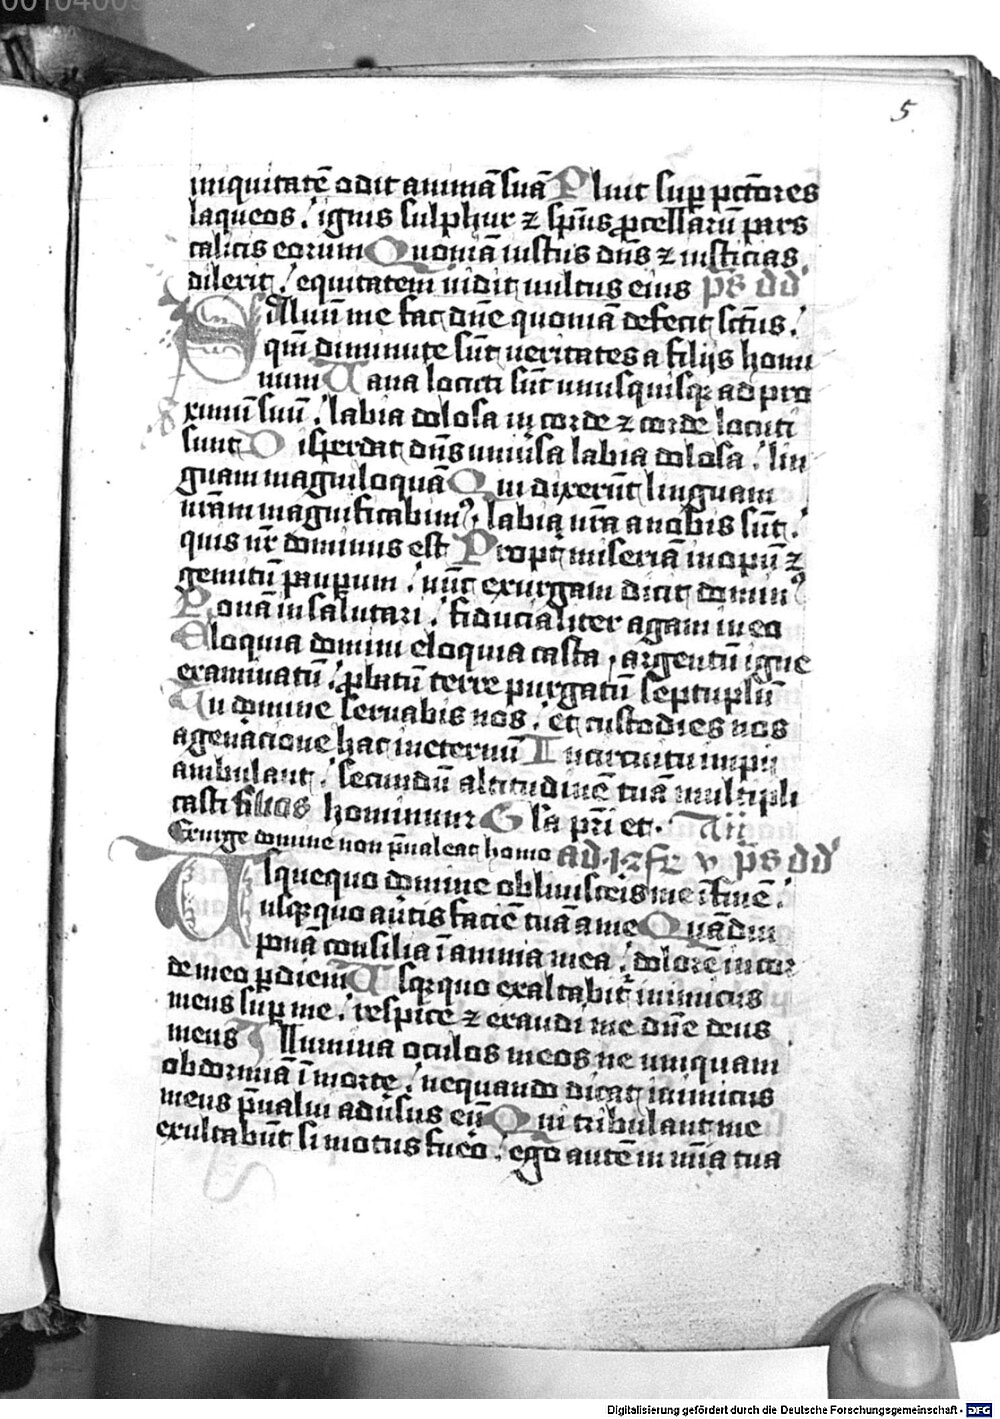 00104003
5
iniquitatē odit animā suā Pluit sup̄ pctōres
laqueos / ignis sulphur ⁊ sp̄us ꝓcellarū pars
calicis eorum Quoniā iustus dn̄s ⁊ iusticias
dilexit / equitatem vidit vultus eius ps̄ dd
Saluū me fac dn̄e quoniā defecit sctūs /
qm̄ diminute sūt veritates a filijs homi
num Uana locuti sūt unusquisqꝫ ad pro
ximū suū / labia dolosa in corde ⁊ corde locuti
sunt Disperdat dn̄s uniūsa labia dolosa / lin
guam magniloquā Qui dixerūt linguam
nr̄am magnificabimꝰ / labia nr̄a a nobis sūt /
quis nr̄ dominus est Propt̄ miseriā inopū ⁊
gemitū paup̲um / nūc exurgam dicit dominꝰ
Ponā in salutari / fiducialiter agam in eo
Eloquia domini eloquia casta / argentū igne
examinatū / ꝓbatū terre purgatū septuplū
Tu domine seruabis nos / et custodies nos
a genacione hac in eternū In circuitu impij
ambulant / secundū altitudinē tuā multipli
casti filios hominum Gla pr̄i et
Exurge domine non p̄ualeat homo ad ps̄ dd
Usquequo domine obliuisceis me ī finē /
usqꝫquo au̇tis faciē tuā a me Quādiu
ponā consilia ī anima mea / dolorē in cor
de meo ꝑ diem Usqꝫquo exaltabit̄ inimicus
meus sup̲ me / respice ⁊ exaudi me dn̄e deus
meus Illumina oculos meos ne umquam
obdormiā ī morte / nequando dicat inimicus
meus p̄ualui adūsus eū Qui tribulant me
exultabūt si motus fuēo / ego autē in mīa tua
Digitalisierung gefördert durch die Deutsche Forschungsgemeinschaft - DFG